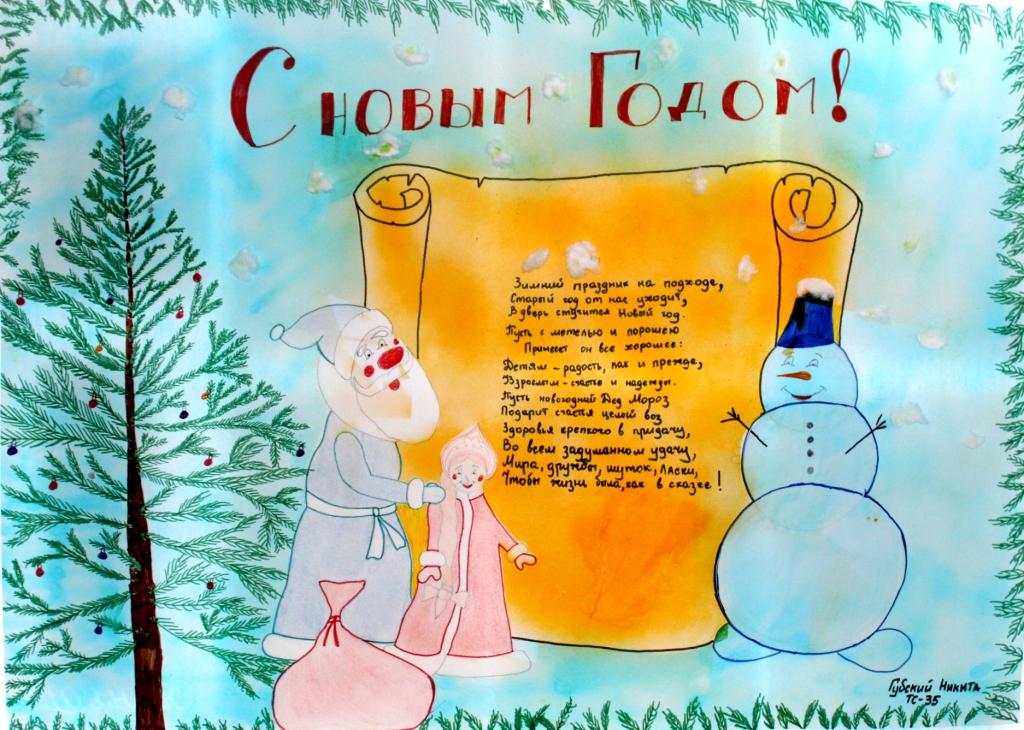 С новым Годом!
Зимний праздник на подходе,
Старый год от нас уходит,
В дверь стучится Новый год.
Пусть с метелью и порошею
Принесет он все хорошее:
Детям – радость, как и прежде,
Взрослым – счастье и надежды.
Пусть новогодний Дед Мороз
Подарит счастья целый воз
Здоровья крепкого в придачу,
Во всем задуманном удачу,
Мира, дружбы, шуток, ласки,
Чтобы жизнь была, как в сказке!
Губский Никита
ТС-35